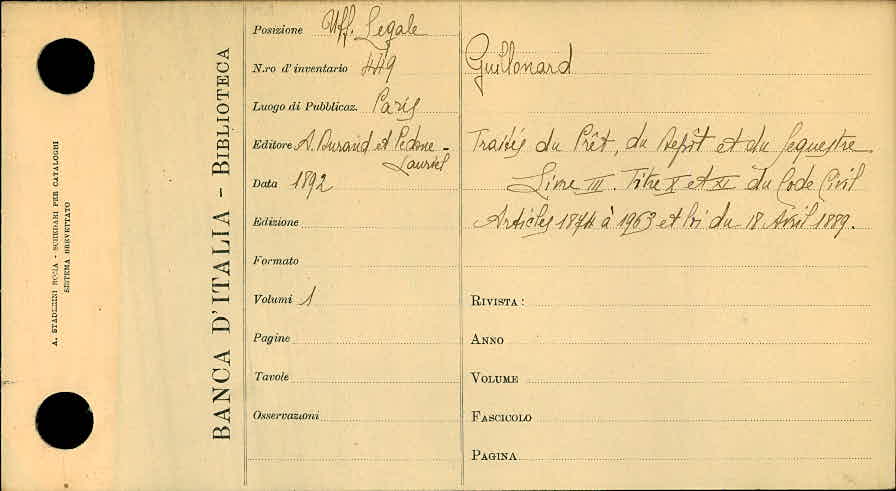 A. STADERINI ROMA - SCHEDARI PER CATALOGHI
SISTEMA BREVETTATO
BANCA D'ITALIA - BIBLIOTECA
Posizione Uff. Legale
N.ro d'inventario 449
Luogo di Pubblicaz. Paris
Editore A. Durand et Pedone-
Lauriel
Data 1892
Edizione
Formato
Volumi 1
Pagine
Tavole
Osservazioni
Guillouard
Traités du Prêt, du Depôt et du Sequestre
Livre III. Titre X et XI du Code Civil
Articles 1874 à 1963 et loi du 18 Avril 1889.
RIVISTA:
ANNO
VOLUME
FASCICOLO
PAGINA